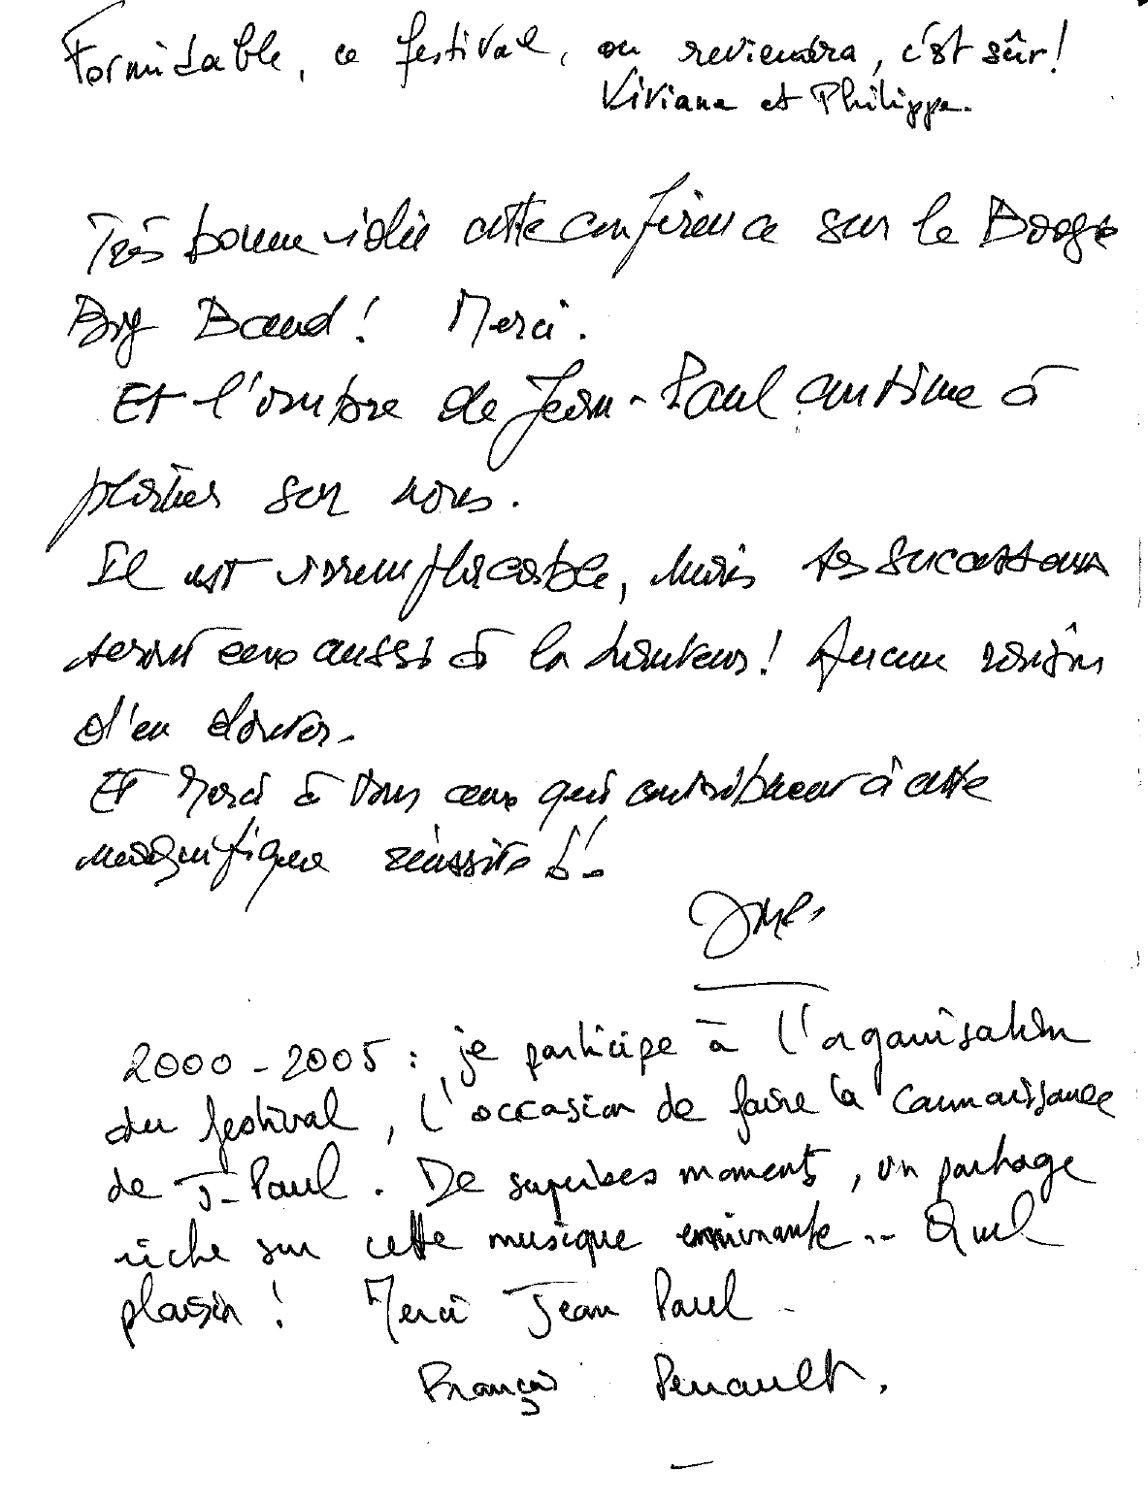 Formidable, ce festival, on reviendra, c'est sûr!
Viviane et Philippe.
Très bonne idée cette conférence sur le Boogie
Big Band! Merci.
Et l'ombre de Jean-Paul continue à
planer sur nous.
Il est irremplaçable, mais ses successeurs
seront eux aussi à la hauteur! Aucune raison
d'en douter.
Et Merci à tous ceux qui contribuent à cette
magnifique réussite!!
2000-2005 : je participe à l'organisation
du festival, l'occasion de faire la connaissance
de J-Paul. De superbes moments, un partage
riche sur cette musique enivrante.. Quel
plaisir! Merci Jean Paul -
François